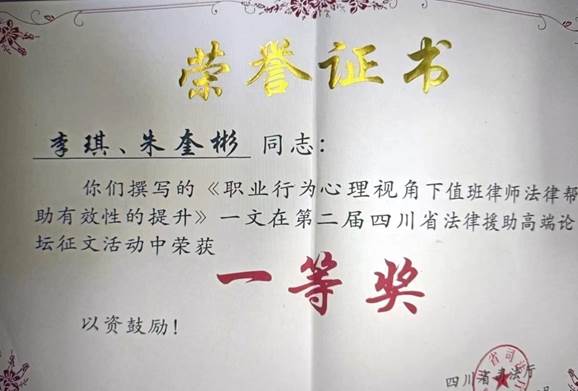 荣誉证书
李琪、朱奎彬 同志：
你们撰写的《职业行为心理视角下值班律师法律帮
助有效性的提升》一文在第二届四川省法律援助高端论
坛征文活动中荣获
一等奖
以资鼓励！
四川省司法厅